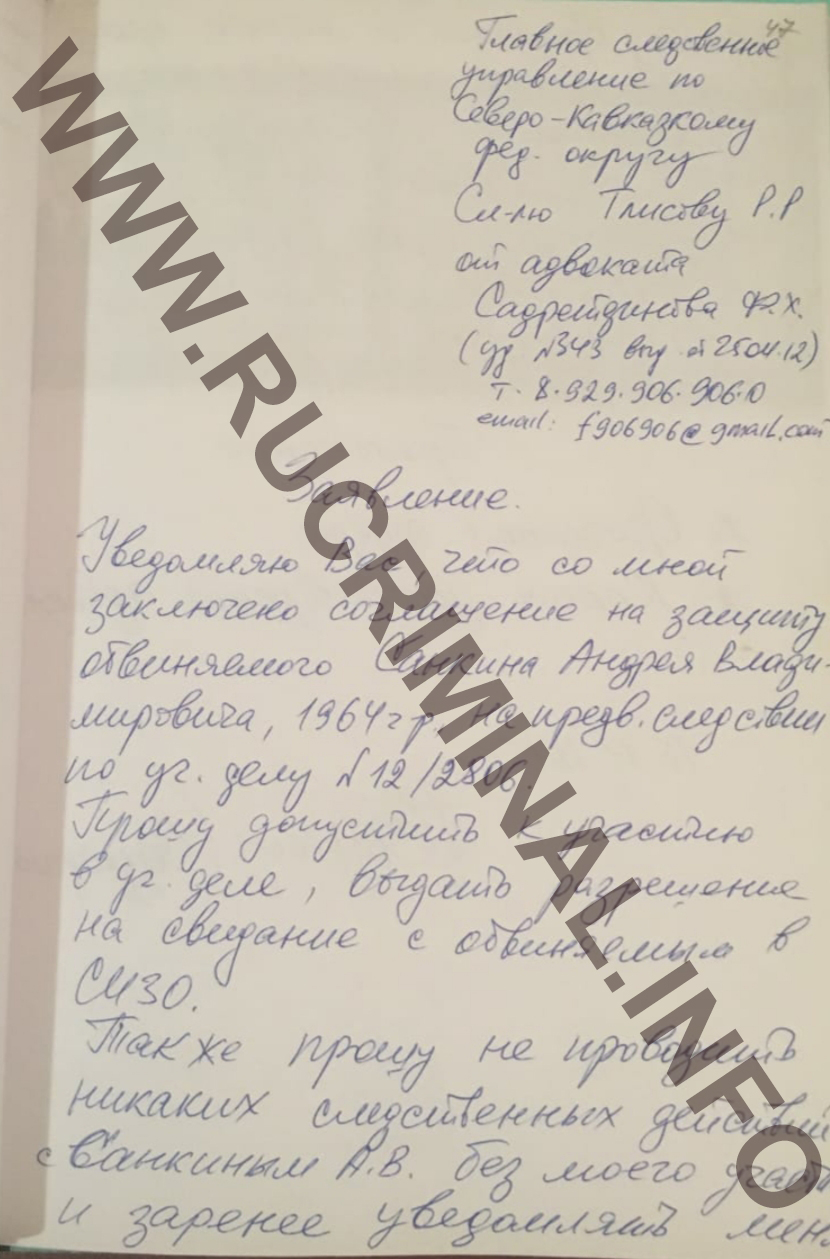 47
Главное следственное
управление по
Северо-Кавказкому
фед. округу
Сл-лю Тлисову Р.Р
от адвоката
Садретдинова Ф.Х.
(уд №343 выд от 25.04.12)
т. 8.929.906.906.0
email: f906906@gmail.com
Заявление.
Уведомляю Вас, что со мной
заключено соглашение на защиту
обвиняемого Санкина Андрея Влади-
мировича, 1964 г р. на предв. следствии
по уг. делу №12/2806.
Прошу допустить к участию
в уг. деле, выдать разрешение
на свидание с обвиняемым в
СИЗО.
Также прошу не проводить
никаких следственных действий
с Санкиным А.В. без моего участ
и заренее уведомлять мен
WWW.RUCRIMINAL.INFO